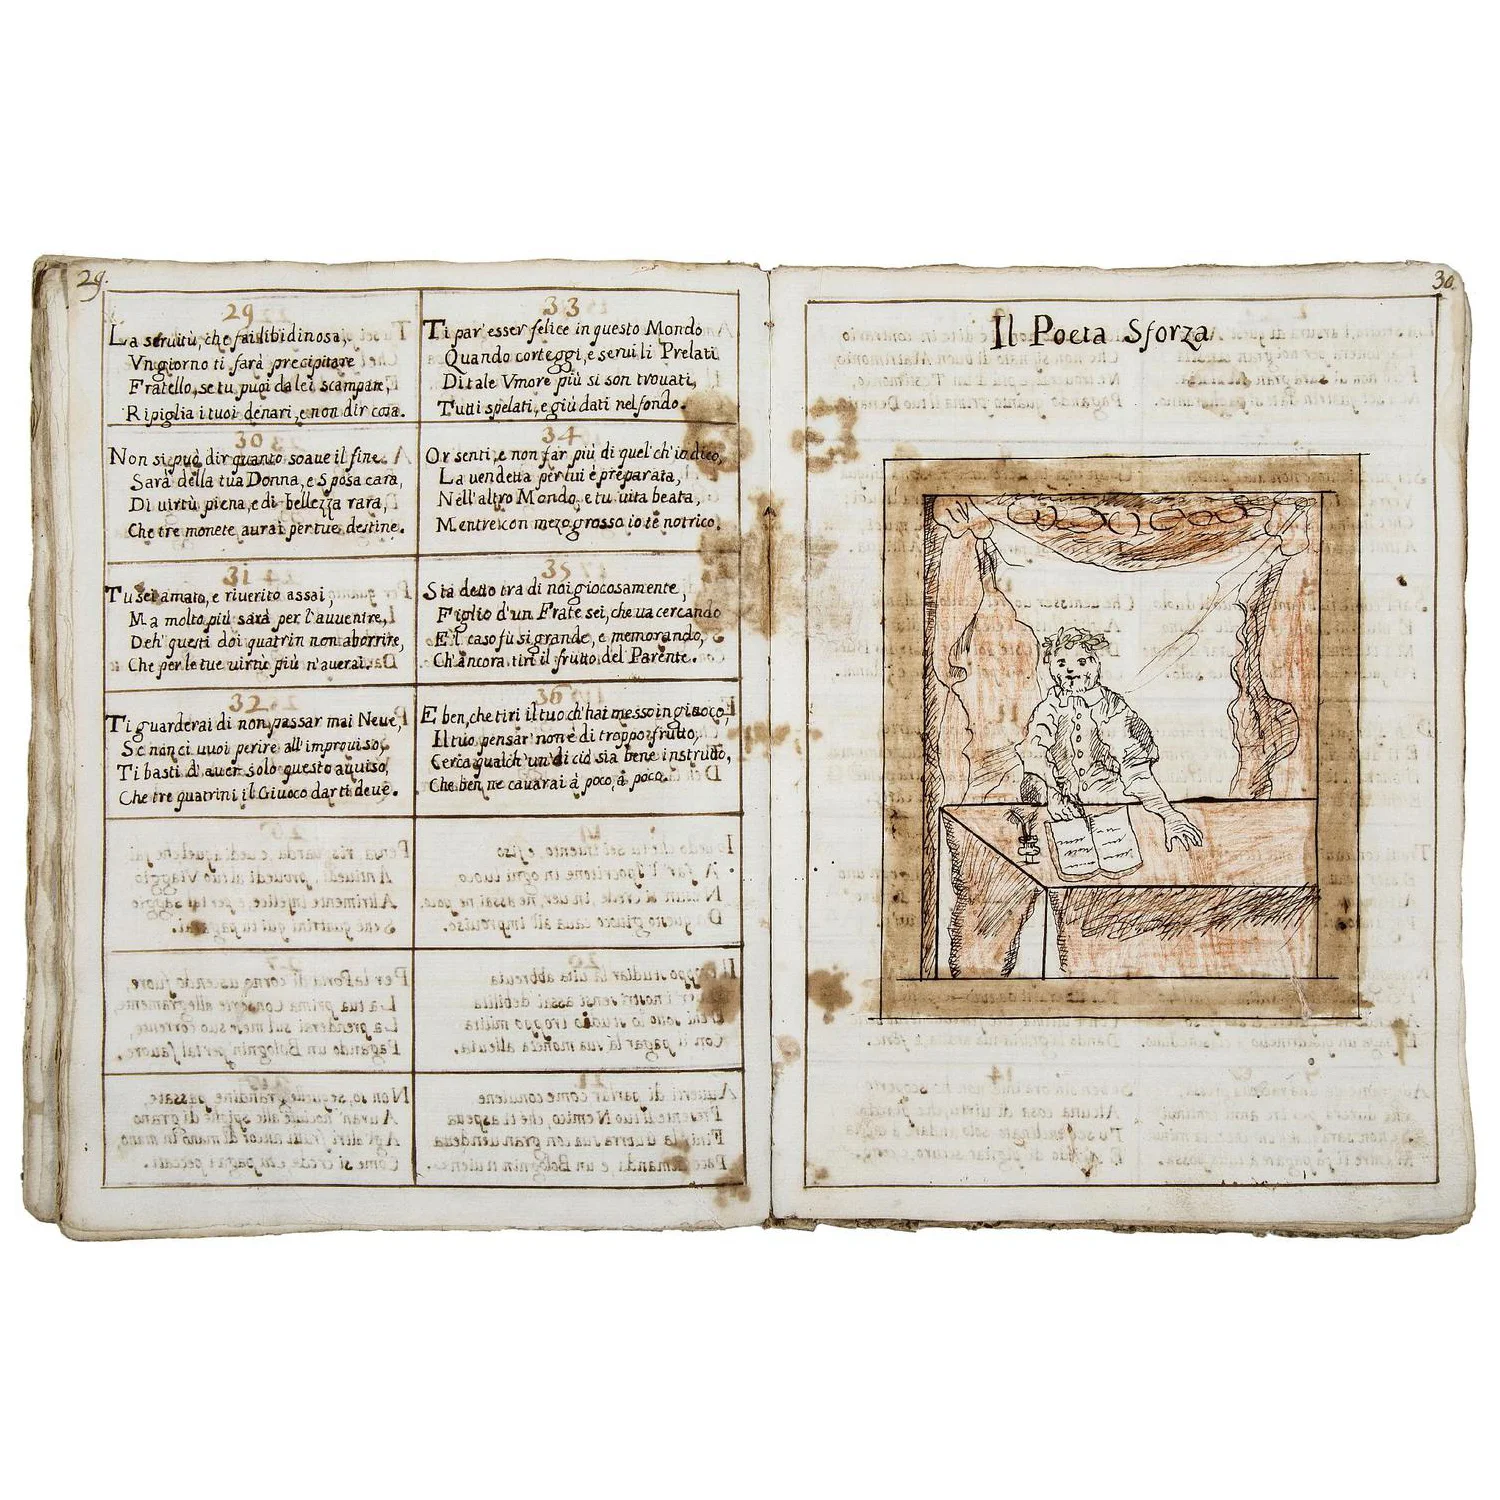 29.
29
La seruitù, che fai libidinosa,
Vn giorno ti farà precipitare
Fratello, se tu puoi da lei scampare,
Ripiglia i tuoi denari, e non dir cosa.
30
Non si può dir quanto soaue il fine
Sarà della tua Donna, e Sposa cara,
Di virtù piena, e di bellezza rara,
Che tre monete aurai per tue destine.
31
Tu sei amato, e riuerito assai,
Ma molto più sarà per l'auuenire,
Deh' questi doi quatrin non aborrire,
Che per le tue virtù più n'auerai.
32
Ti guarderai di non passar mai Neue,
Se non ci uuoi perire all'improuiso,
Ti basti d'auer solo questo auuiso,
Che tre quatrini il Giuoco darti deue.
33
Ti par' esser felice in questo Mondo
Quando corteggi, e serui li Prelati
Di tale Vmore più si son trouati,
Tutti spelati, e giù dati nel fondo.
34
Or senti, e non far più di quel ch'io dico,
La uendetta per lui è preparata,
Nell'altro Mondo, e tu uita beata,
Mentre con mezo grosso io te notrico.
35
Sia detto tra di noi giocosamente,
Figlio d'un Frate sei, che ua cercando
E'l caso fù si grande, e memorando,
Ch'ancora tiri il frutto del Parente.
36
E ben, che tiri il tuo ch'hai messo in giuoco,
Il tuo pensar non è di troppo frutto,
Cerca qualch'un di ciò sia bene instrutto,
Che ben ne cauarai à poco, à poco.
30.
Il Poeta Sforza